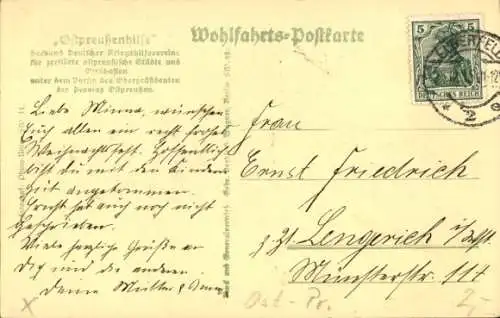 „Ostpreußenhilfe"
Verband Deutscher Kriegshilfsvereine
für zerstörte ostpreußische Städte und
Ortschaften
unter dem Vorsitz des Oberpräsidenten
der Provinz Ostpreußen.
Wohlfahrts-Postkarte
5 5
DEUTSCHES REICH
Liebe Minna, wünschen
Euch allen ein recht frohes
Weihnachtsfest. Hoffentlich
bist du mit den Kindern
gut angekommen.
Ernst hat auch noch nicht
geschrieben.
Viele herzliche Grüße an
Dich und die anderen
Deine Mutter &
Frau
Ernst Friedrich
z. Zt. Lengerich i/Westf.
Münsterstr. 114
Ost-Pr.
2,-